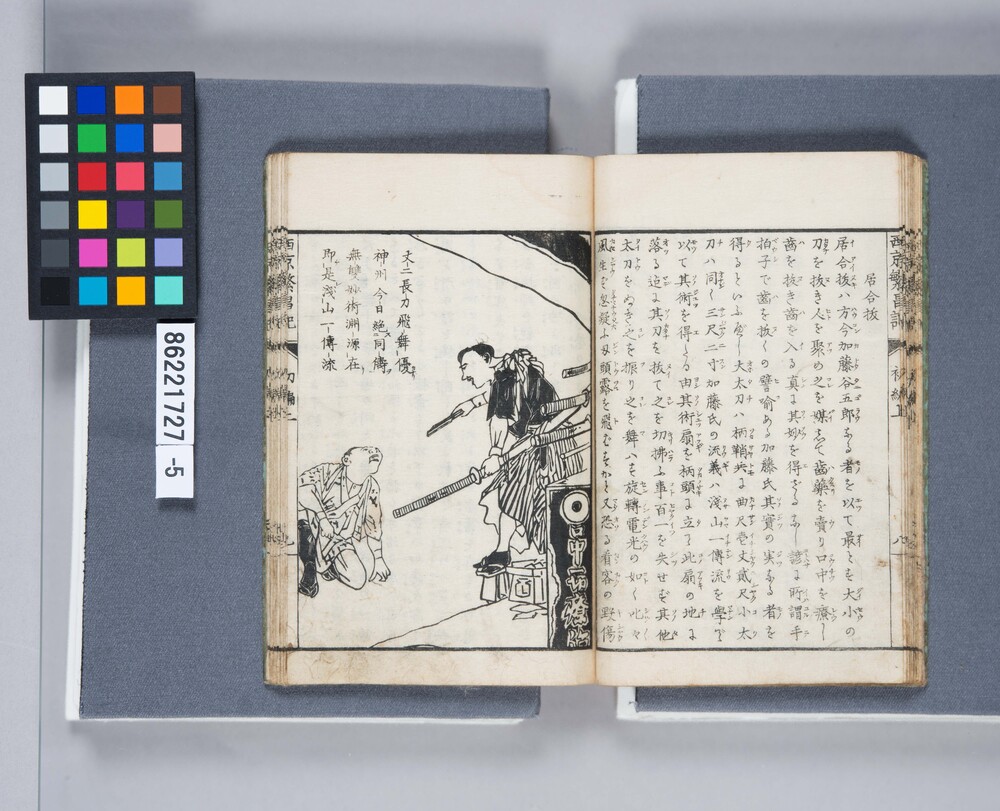 居合抜
居合抜ハ方今加藤谷五郎なる者を以て最とも大小の
刀を抜き人を聚め之を媒として歯藥を賣り口中を療し
歯を抜き歯を入る真に其妙を得ざるなし諺に所謂手
拍子で歯を抜くの譬喩ある加藤氏其實の実なる者を
得るといふべし大太刀ハ柄鞘共に曲尺壱丈貳尺小太
刀ハ同く三尺二寸加藤氏の流義ハ淺山一傳流を學び
以て其術を得たる由其術扇を柄頭に立て此扇の地に
落る迄に其刀を抜て之を切拂ふ事百一を失せず其他
太刀をぬき之を振り之を舞ハす旋轉電光の如く叱々
風生
丈二長刀飛舞優
神州今日絶同儔
無雙妙術淵源在
即是淺山一傳流
西京繁昌記
初編
西京繁昌記
初編上
八
口中一切療治
86221727
-5